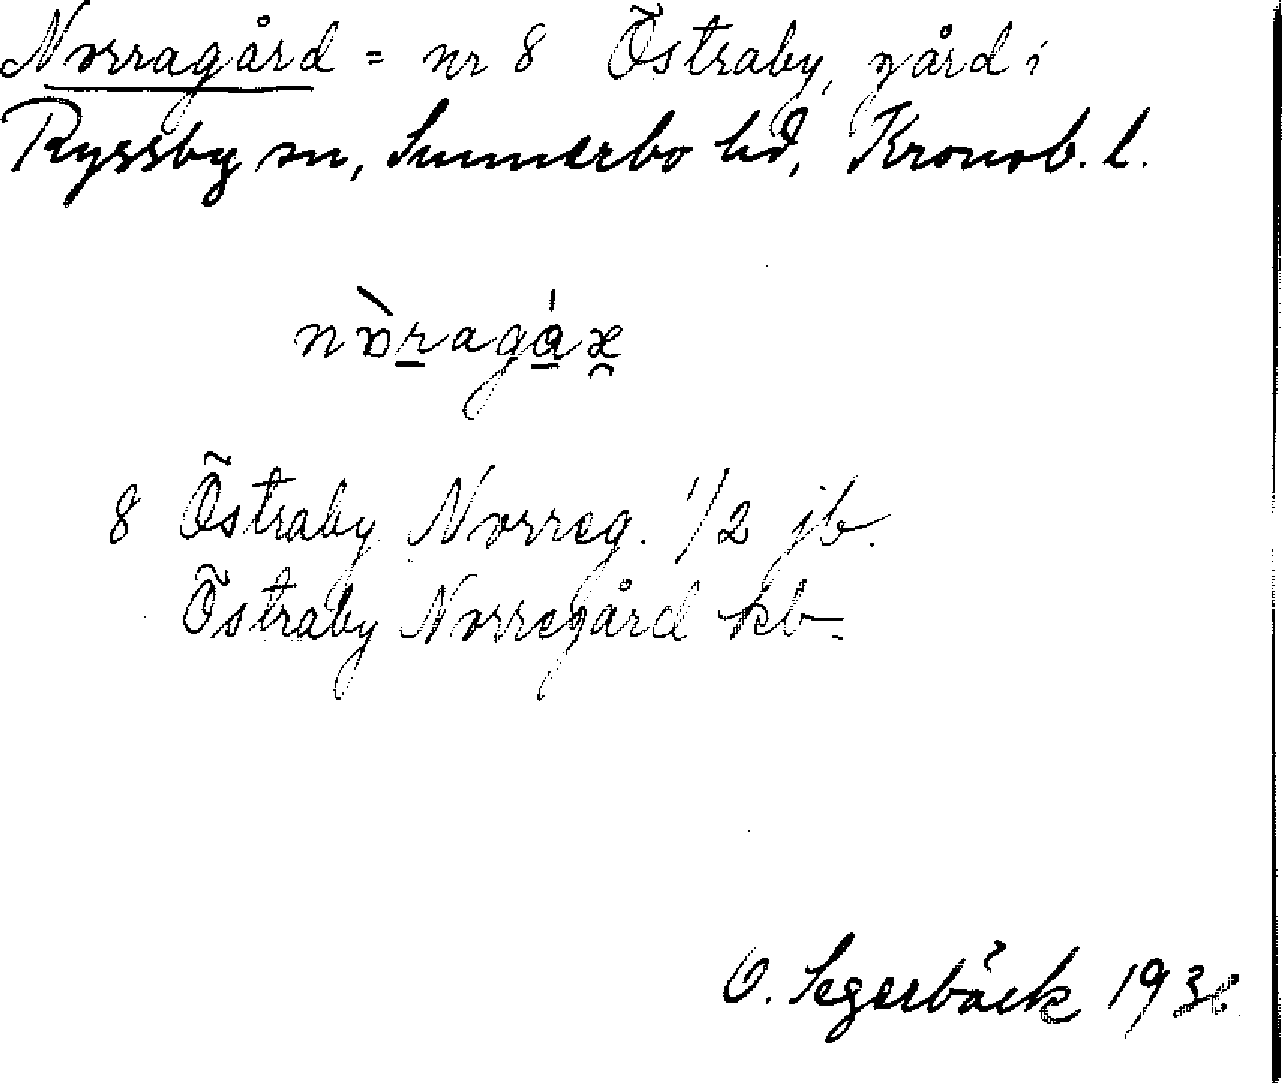 Norragård = nr 8 Östraby, gård i
Ryssby sn, Sunnerbo hd, Kronob. l.
8 Östraby Norreg. 1/2 jb.
Östraby Norregård kb.
O. Segerbäck